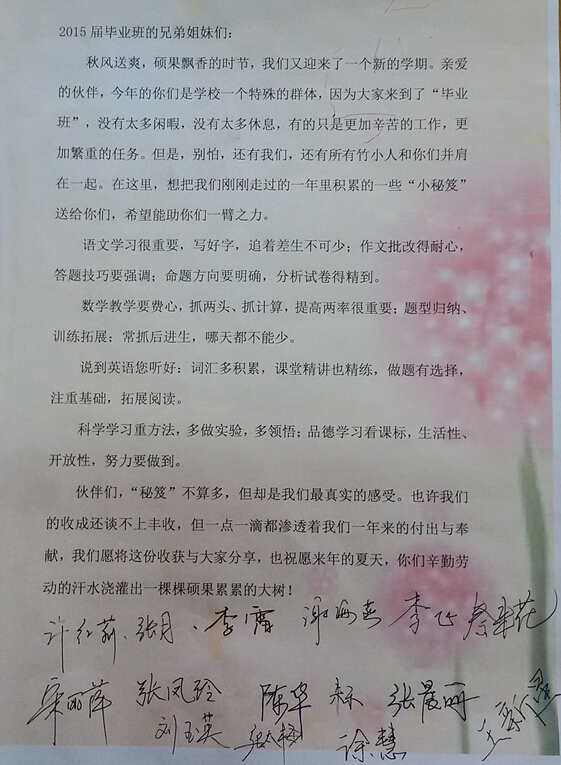 2015 届毕业班的兄弟姐妹们：
秋风送爽，硕果飘香的时节，我们又迎来了一个新的学期。亲爱
的伙伴，今年的你们是学校一个特殊的群体，因为大家来到了“毕业
班”，没有太多闲暇，没有太多休息，有的只是更加辛苦的工作，更
加繁重的任务。但是，别怕，还有我们，还有所有竹小人和你们并肩
在一起。在这里，想把我们刚刚走过的一年里积累的一些“小秘笈”
送给你们，希望能助你们一臂之力。
语文学习很重要，写好字，追着差生不可少；作文批改得耐心，
答题技巧要强调；命题方向要明确，分析试卷得精到。
数学教学要费心，抓两头、抓计算，提高两率很重要；题型归纳、
训练拓展；常抓后进生，哪天都不能少。
说到英语您听好：词汇多积累，课堂精讲也精练，做题有选择，
注重基础，拓展阅读。
科学学习重方法，多做实验，多领悟；品德学习看课标，生活性、
开放性，努力要做到。
伙伴们，“秘笈”不算多，但却是我们最真实的感受。也许我们
的收成还谈不上丰收，但一点一滴都渗透着我们一年来的付出与奉
献，我们愿将这份收获与大家分享，也祝愿来年的夏天，你们辛勤劳
动的汗水浇灌出一棵棵硕果累累的大树！
许红莉、张月、李霄 李
宋丽萍 张凤玲 陈华 张晨丽
刘玉英 徐慧